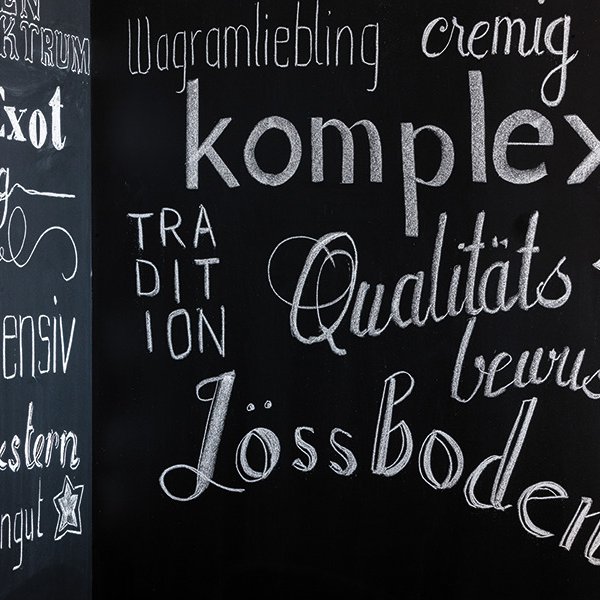 EN
KTRUM
Exot
g
ensiv
estern
ngut
Wagramliebling
cremig
komplex
TRA
DIT
ION
Qualitäts
bewus
Lössboden